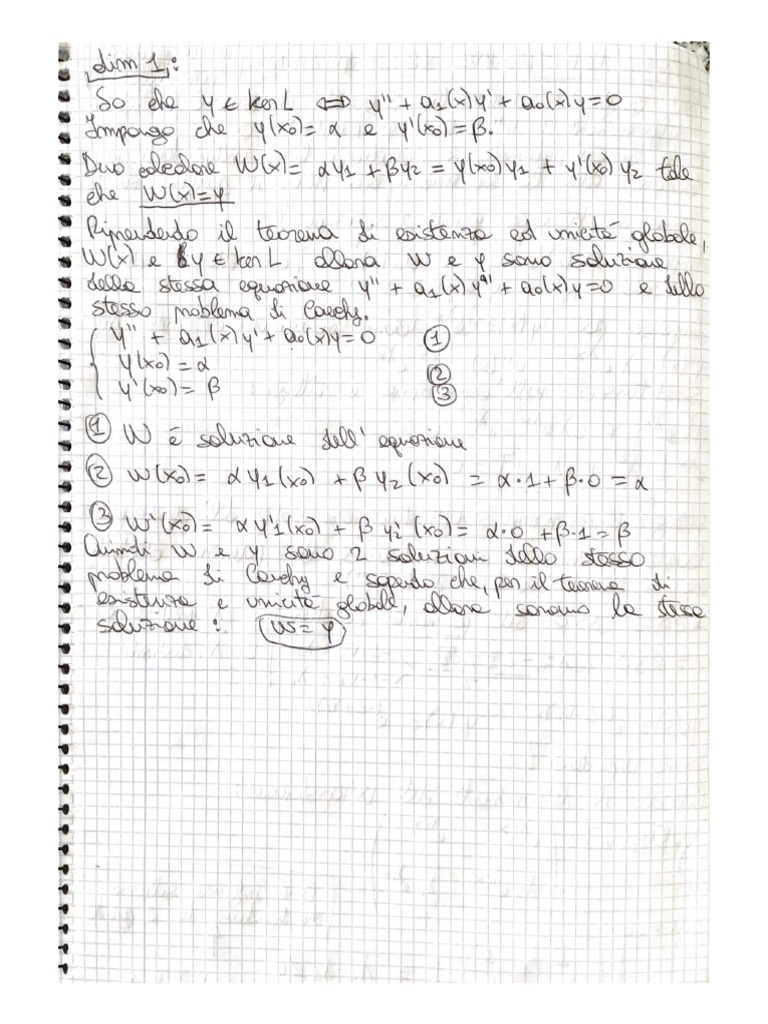 dim 1:
So che y ∈ Ker L ⟺ y'' + a₁(x)y' + a₀(x)y=0
Impongo che y(x₀)= α e y'(x₀)= β.
Devo calcolare W(x)= αy₁ + βy₂ = y(x₀)y₁ + y'(x₀)y₂ tale
che W(x)=y
Riprendendo il teorema di esistenza ed unicità globale,
W(x) e y ∈ Ker L allora W e y sono soluzione
della stessa equazione y'' + a₁(x)y' + a₀(x)y=0 e dello
stesso problema di Cauchy.
{ y'' + a₁(x)y' + a₀(x)y=0 ①
y(x₀) = α ②
y'(x₀) = β ③
① W è soluzione dell'equazione
② W(x₀)= αy₁(x₀) + βy₂(x₀) = α·1+ β·0 = α
③ W'(x₀)= αy'₁(x₀) + βy'₂(x₀)= α·0 +β·1= β
Quindi W e y sono 2 soluzioni dello stesso
problema di Cauchy e sapendo che, per il teorema di
esistenza e unicità globale, allora saranno la stessa
soluzione: W = y